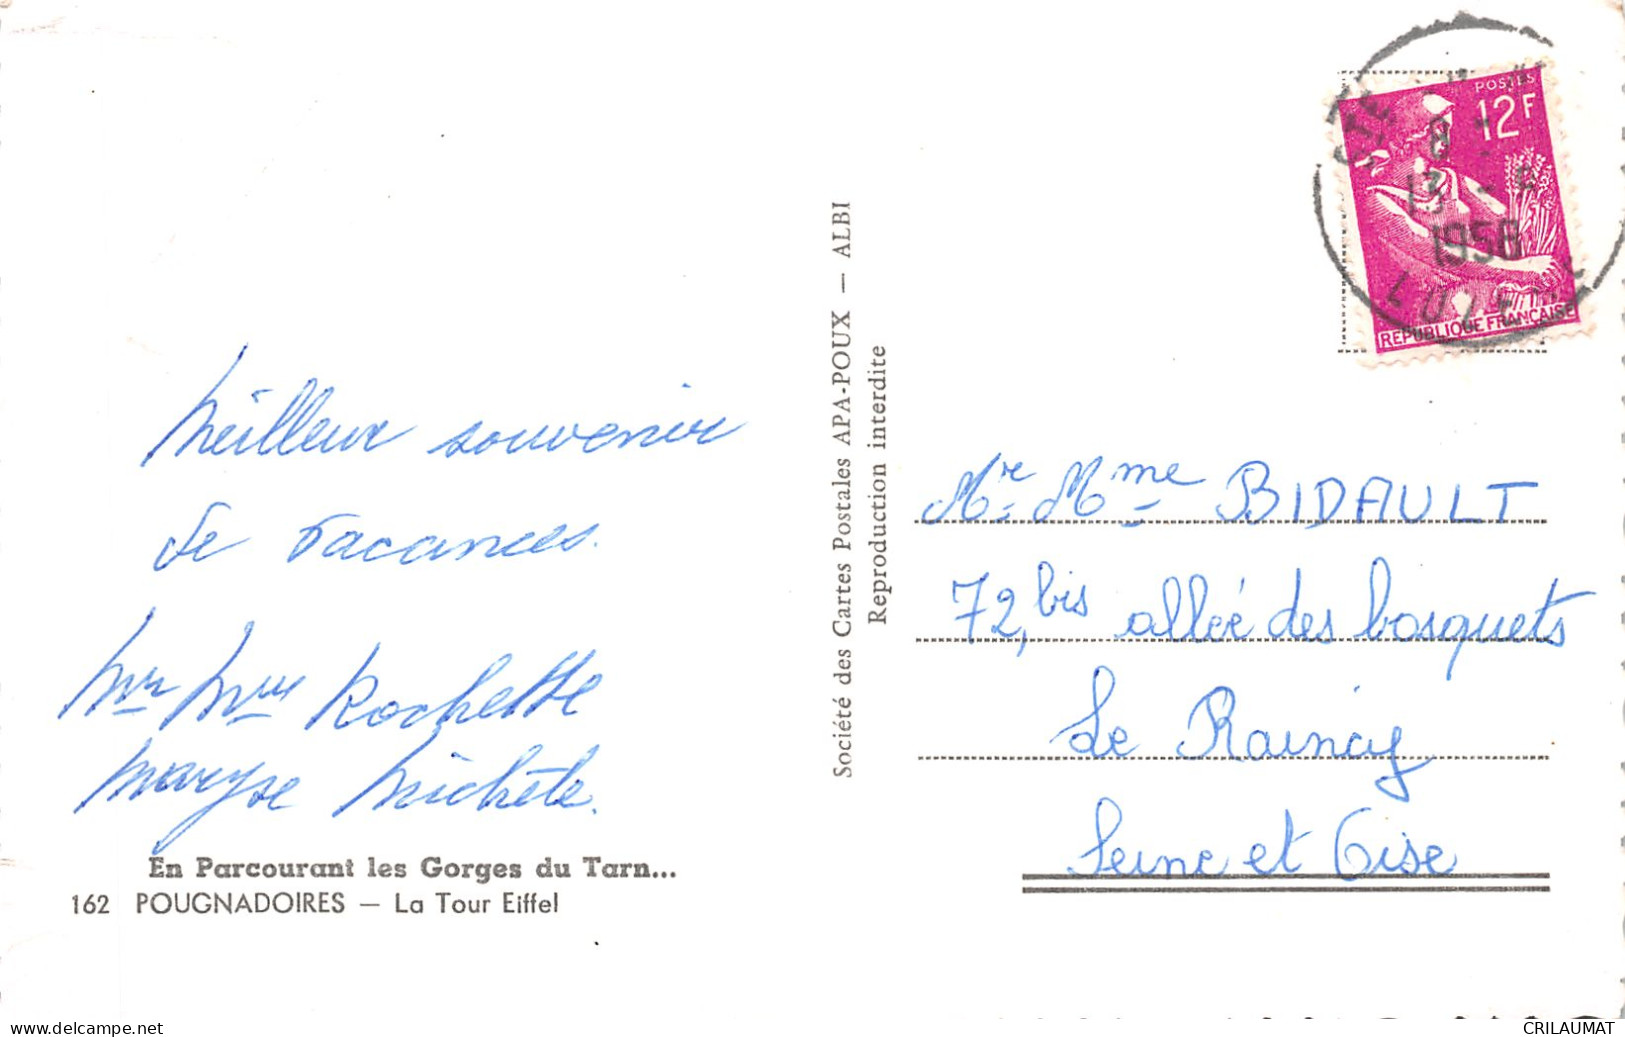 Meilleur souvenir
de vacances.
Mr Mme Rochette
Maryse Michèle.
En Parcourant les Gorges du Tarn...
162 POUGNADOIRES — La Tour Eiffel
Société des Cartes Postales APA-POUX — ALBI
Reproduction interdite
POSTES
12F
REPUBLIQUE FRANÇAISE
13
1958
Mr. Mme BIDAULT
72, bis allée des bosquets
Le Raincy
Seine et Oise
www.delcampe.net
CRILAUMAT